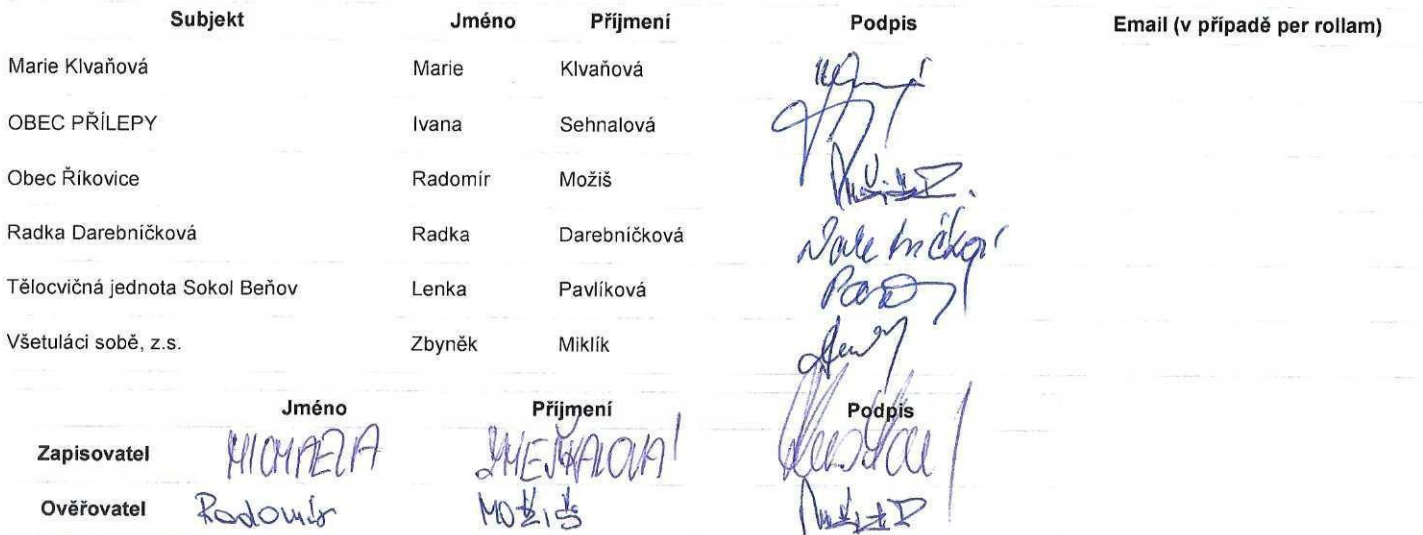 Subjekt Jméno Příjmení Podpis Email (v případě per rollam)
Marie Klvaňová Marie Klvaňová
OBEC PŘÍLEPY Ivana Sehnalová
Obec Říkovice Radomír Možiš
Radka Darebníčková Radka Darebníčková
Tělocvičná jednota Sokol Beňov Lenka Pavlíková
Všetuláci sobě, z.s. Zbyněk Miklík
Jméno Příjmení Podpis
Zapisovatel MICHAELA
Ověřovatel Radomír MOŽIŠ